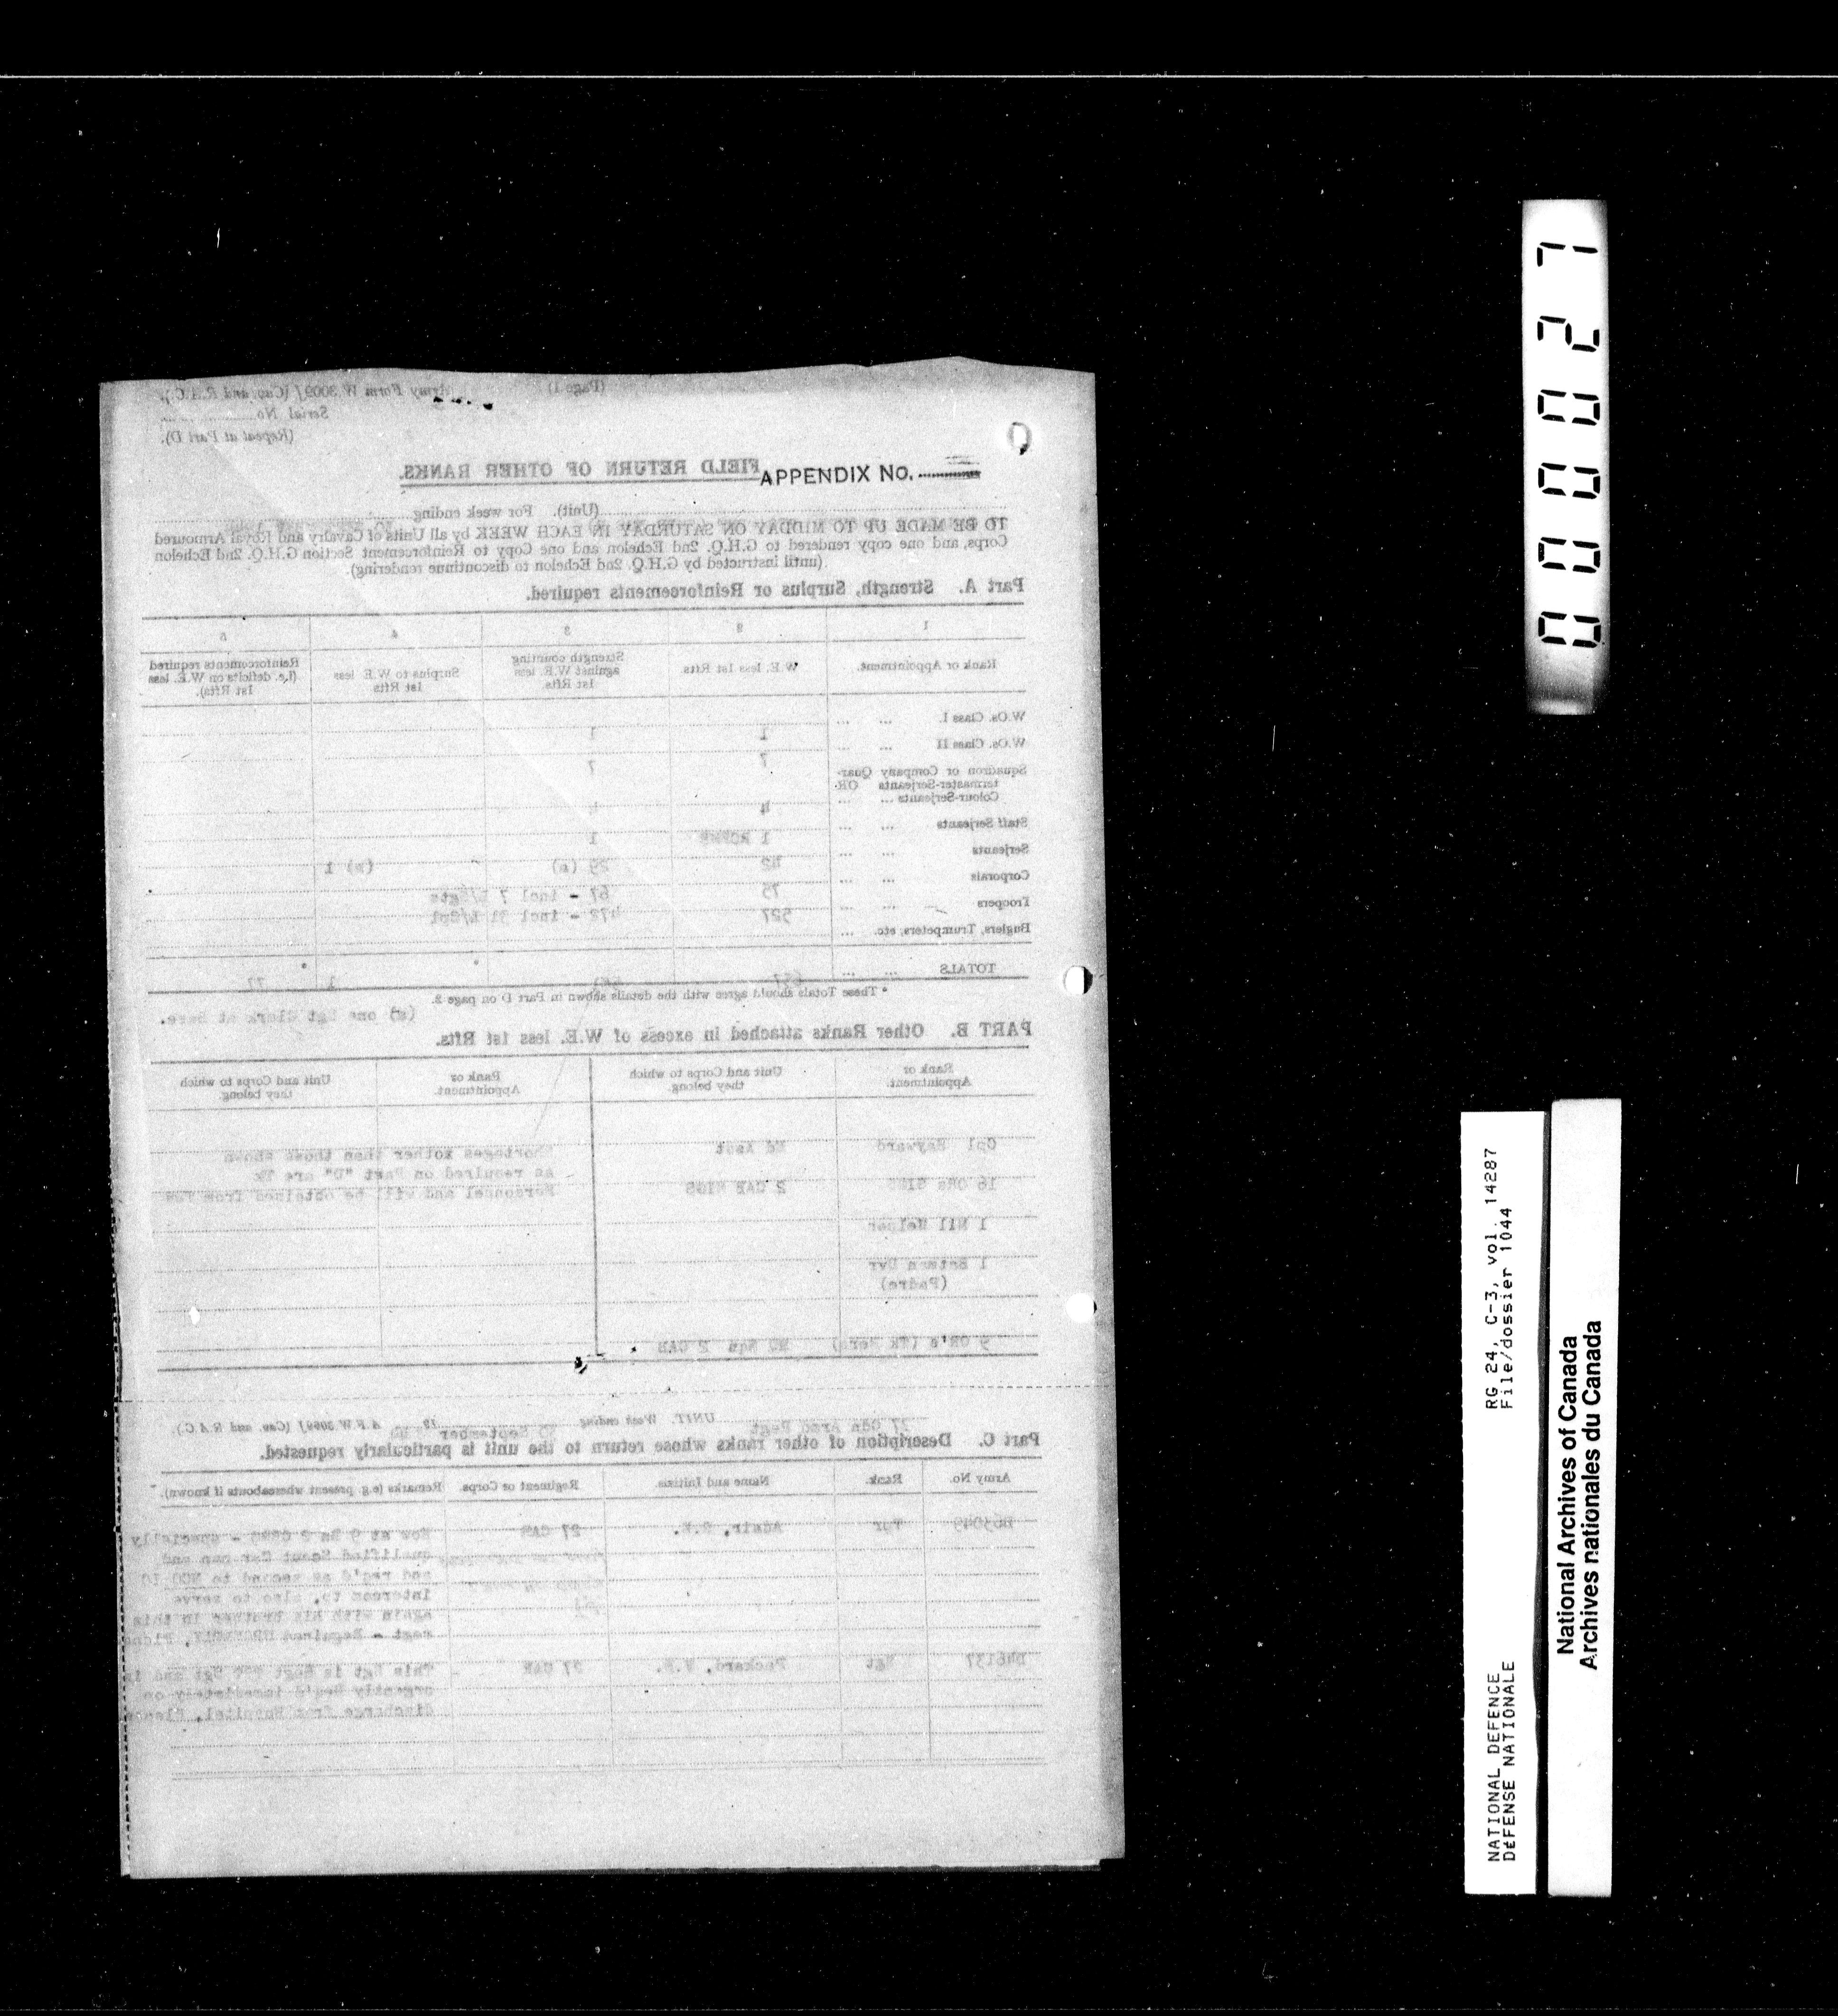 (Page 1)
Army Form W 3009/ (Cav. and R.A.C.).
Serial No.
(Repeat at Part D).
FIELD RETURN OF OTHER RANKS.
APPENDIX No.
(Unit). For week ending
TO BE MADE UP TO MIDDAY ON SATURDAY IN EACH WEEK by all Units of Cavalry and Royal Armoured
Corps, and one copy rendered to G.H.Q. 2nd Echelon and one Copy to Reinforcement Section G.H.Q. 2nd Echelon
(until instructed by G.H.Q. 2nd Echelon to discontinue rendering).
Part A. Strength, Surplus or Reinforcements required.
1 2 3 4 5
Rank or Appointment. W.E. less 1st Rfts Strength counting against W.E. less 1st Rfts. Surplus to W.E. less 1st Rfts Reinforcements required (i.e. deficits on W.E. less 1st Rfts).
W.Os. Class I. ... ... 1 1
W.Os. Class II ... ... 7 7
Squadron or Company Quar-
termaster-Serjeants OR-
Colour-Serjeants ... ... 4 4
Staff Serjeants ... ... 1 1
Serjeants ... ... 29 (a) (a) 1
Corporals ... ... 75 67 - incl 7 L/Sgts
Troopers ... ... 527 472 - incl 31 L/Cpl
Buglers, Trumpeters, etc. ...
TOTALS ... ... 657 1 77
* These Totals should agree with the details shown in Part D on page 2.
(a) one Sgt Clerk at Base.
PART B. Other Ranks attached in excess of W.E. less 1st Rfts.
Rank or Appointment. Unit and Corps to which they belong. Rank or Appointment. Unit and Corps to which they belong.
Cpl Hayward
Shortages other than those shown
as required on Part "D" are Tk
Personnel and will be obtained from
16 ORs SIGS 2 CAB SIGS
1 Mil
1 Batman Dvr
(Padre)
9 OR's HQ Sqn 2 CAB
27 Cdn Armd Regt UNIT. Week ending 30 September 19 A.F.W. 3009/ (Cav. and R.A.C.).
Part C. Description of other ranks whose return to the unit is particularly requested.
Army No. Rank. Name and Initials. Regiment or Corps. Remarks (e.g. present whereabouts if known).
Tpr Adair, 27 CAR Now at - specially
qualified Scout Car man and
and req'd as second to NCO IC
intercom to, also to serve
again with his brother in this
regt - Required URGENTLY,
Sgt Packard, 27 CAR This Sgt is Sgt and is
urgently Req'd immediately on
discharge from Hospital,
0000027
RG 24, C-3, vol. 14287
File/dossier 1044
NATIONAL DEFENCE
DÉFENSE NATIONALE
National Archives of Canada
Archives nationales du Canada